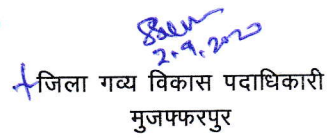 2.9.2020
जिला गव्य विकास पदाधिकारी
मुजफ्फरपुर